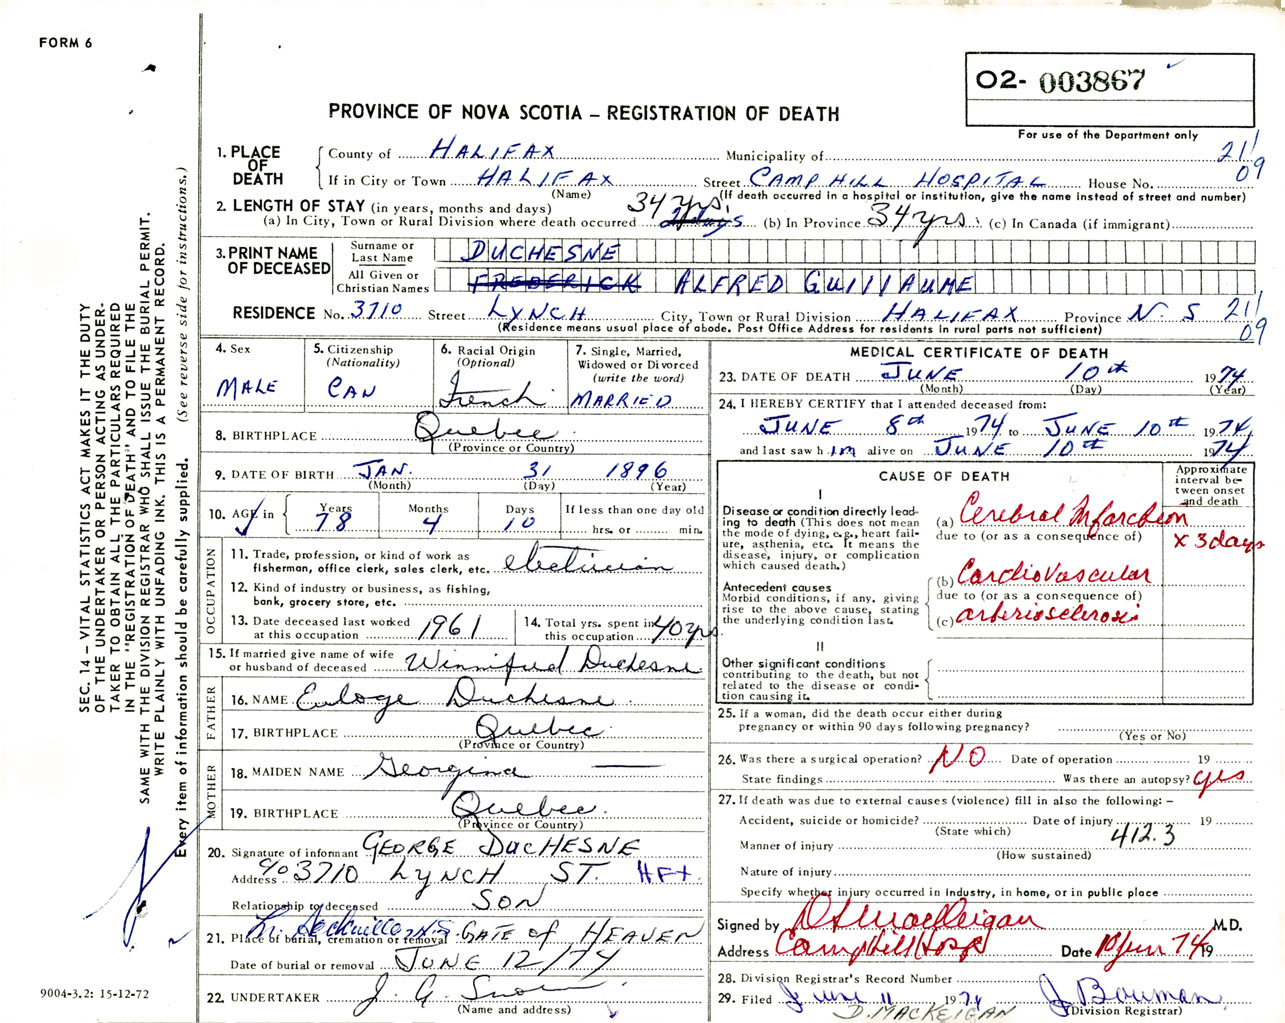 FORM 6
O2- 003867
PROVINCE OF NOVA SCOTIA – REGISTRATION OF DEATH
For use of the Department only
1. PLACE OF DEATH
County of HALIFAX Municipality of 21/
If in City or Town HALIFAX Street CAMP HILL HOSPITAL House No. 09
(Name) (If death occurred in a hospital or institution, give the name instead of street and number)
2. LENGTH OF STAY (in years, months and days) 34 yrs.
(a) In City, Town or Rural Division where death occurred 2 days (b) In Province 34 yrs. (c) In Canada (if immigrant)
3. PRINT NAME OF DECEASED
Surname or Last Name DUCHESNE
All Given or Christian Names FREDERICK ALFRED GUILLAUME
RESIDENCE No. 3710 Street LYNCH City, Town or Rural Division HALIFAX Province N. S 21/
(Residence means usual place of abode. Post Office Address for residents in rural parts not sufficient) 09
4. Sex MALE
5. Citizenship (Nationality) CAN
6. Racial Origin (Optional) French
7. Single, Married, Widowed or Divorced (write the word) MARRIED
8. BIRTHPLACE Quebec
(Province or Country)
9. DATE OF BIRTH JAN. 31 1896
(Month) (Day) (Year)
10. AGE in Years 78 Months 4 Days 10 If less than one day old
hrs. or min.
OCCUPATION
11. Trade, profession, or kind of work as
fisherman, office clerk, sales clerk, etc. electrician
12. Kind of industry or business, as fishing,
bank, grocery store, etc.
13. Date deceased last worked
at this occupation 1961
14. Total yrs. spent in
this occupation 40 yrs.
15. If married give name of wife
or husband of deceased Winnifred Duchesne
FATHER
16. NAME Euloge Duchesne
17. BIRTHPLACE Quebec
(Province or Country)
MOTHER
18. MAIDEN NAME Georgina —
19. BIRTHPLACE Quebec
(Province or Country)
20. Signature of informant GEORGE DUCHESNE
Address c/o 3710 LYNCH ST. HFX
Relationship to deceased SON
Lr. Sackville N.S.
21. Place of burial, cremation or removal GATE of HEAVEN
Date of burial or removal JUNE 12/74
22. UNDERTAKER J. G. Snow
(Name and address)
MEDICAL CERTIFICATE OF DEATH
23. DATE OF DEATH JUNE 10th 1974
(Month) (Day) (Year)
24. I HEREBY CERTIFY that I attended deceased from:
JUNE 8th 1974 to JUNE 10th 1974,
and last saw h im alive on JUNE 10th 1974
CAUSE OF DEATH
Approximate interval between onset and death
I
Disease or condition directly leading to death (This does not mean the mode of dying, e.g., heart failure, asthenia, etc. It means the disease, injury, or complication which caused death.)
(a) Cerebral Infarction
due to (or as a consequence of) x 3 days
Antecedent causes
Morbid conditions, if any, giving rise to the above cause, stating the underlying condition last.
(b) Cardiovascular
due to (or as a consequence of)
(c) arteriosclerosis
II
Other significant conditions
contributing to the death, but not
related to the disease or condi-
tion causing it.
25. If a woman, did the death occur either during
pregnancy or within 90 days following pregnancy?
(Yes or No)
26. Was there a surgical operation? NO Date of operation 19
State findings Was there an autopsy? yes
27. If death was due to external causes (violence) fill in also the following: –
Accident, suicide or homicide? Date of injury 19
(State which) 412.3
Manner of injury
(How sustained)
Nature of injury
Specify whether injury occurred in industry, in home, or in public place
Signed by D MacKeigan M.D.
Address Camp Hill Hosp Date 10 Jun 74 19
28. Division Registrar's Record Number
29. Filed June 11 1974 J Bowman
D. MACKEIGAN (Division Registrar)
SEC. 14 – VITAL STATISTICS ACT MAKES IT THE DUTY
OF THE UNDERTAKER OR PERSON ACTING AS UNDER-
TAKER TO OBTAIN ALL THE PARTICULARS REQUIRED
IN THE "REGISTRATION OF DEATH" AND TO FILE THE
SAME WITH THE DIVISION REGISTRAR WHO SHALL ISSUE THE BURIAL PERMIT.
WRITE PLAINLY WITH UNFADING INK. THIS IS A PERMANENT RECORD.
Every item of information should be carefully supplied. (See reverse side for instructions.)
9004-3.2: 15-12-72